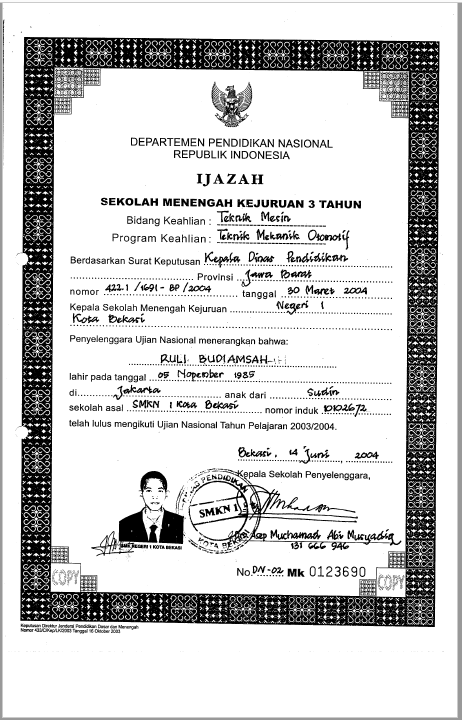 DEPARTEMEN PENDIDIKAN NASIONAL
REPUBLIK INDONESIA
IJAZAH
SEKOLAH MENENGAH KEJURUAN 3 TAHUN
Bidang Keahlian : Teknik Mesin
Program Keahlian : Teknik Mekanik Otomotif
Berdasarkan Surat Keputusan Kepala Dinas Pendidikan
Provinsi Jawa Barat
nomor 422.1 /1691 - BP /2004 tanggal 30 Maret 2004
Kepala Sekolah Menengah Kejuruan Negeri 1
Kota Bekasi
Penyelenggara Ujian Nasional menerangkan bahwa:
RULI BUDIAMSAH
lahir pada tanggal 05 Nopember 1985
di Jakarta anak dari Sudin
sekolah asal SMKN 1 Kota Bekasi nomor induk 10102672
telah lulus mengikuti Ujian Nasional Tahun Pelajaran 2003/2004.
Bekasi, 14 Juni, 2004
Kepala Sekolah Penyelenggara,
PENDIDIKAN
SMKN 1
KOTA BEKASI
SMK NEGERI 1 KOTA BEKASI
Asep Muchamad Abi Musyadiq
131 666 946
No. DN-02 Mk 0123690
COPY
COPY
Keputusan Direktur Jenderal Pendidikan Dasar dan Menengah
Nomor 432/C/Kep/LK/2003 Tanggal 16 Oktober 2003